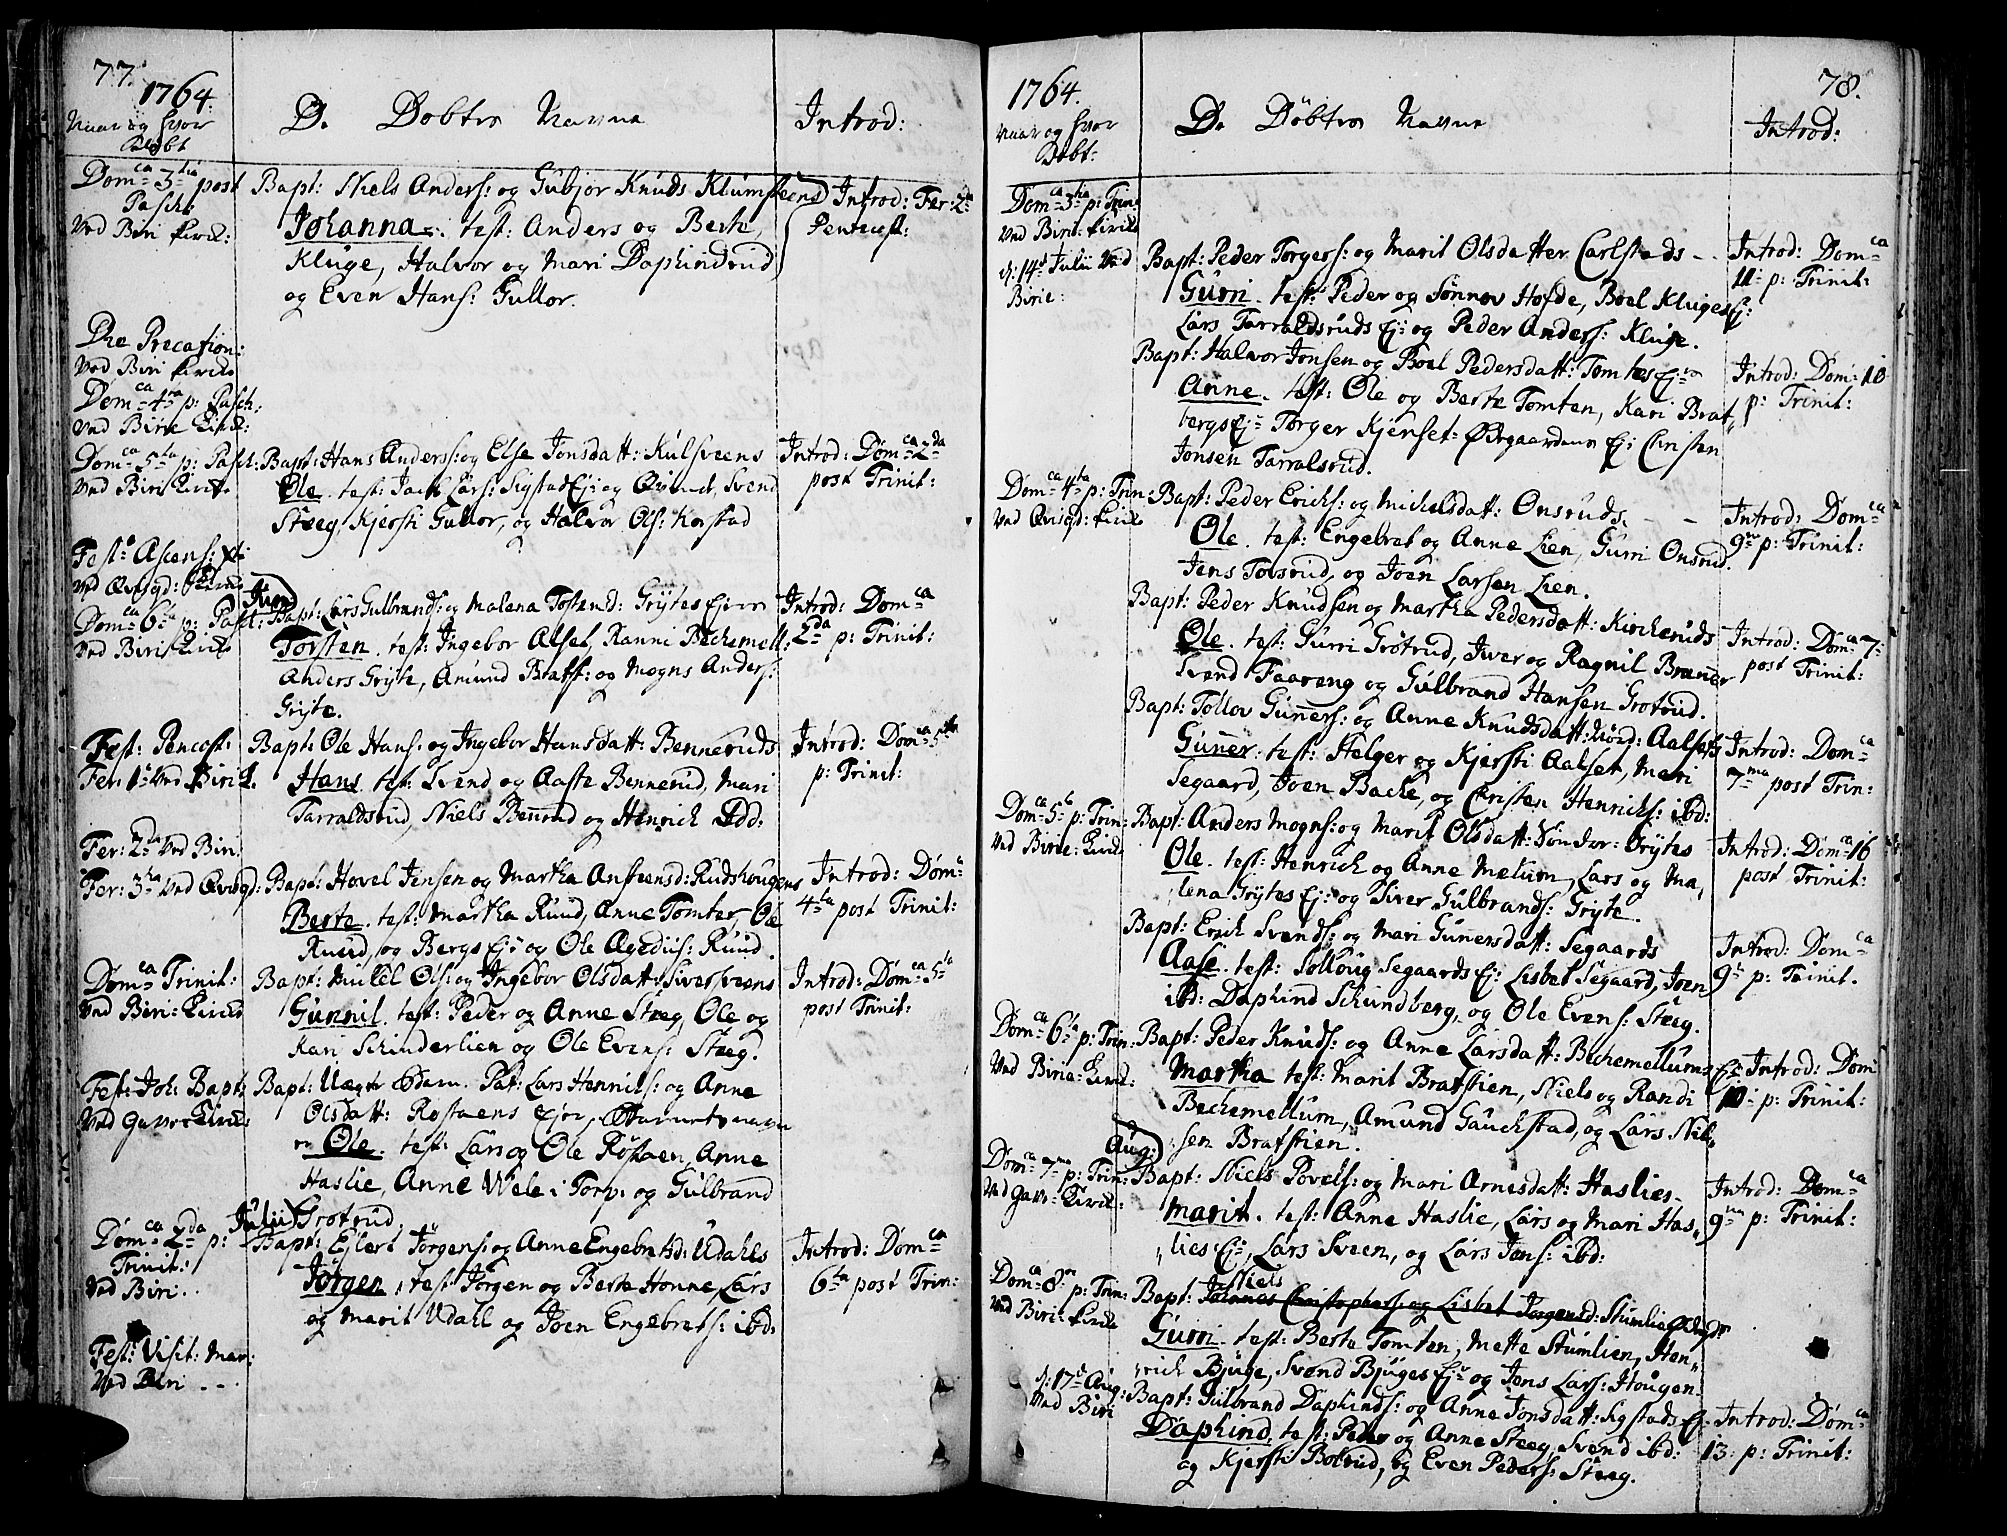 77.
1764.
Naar og hvor
Døbt
D. Døbtes Navne
Introd:
Dom:ca 3tia post
Pascha
Ved Biri Kirche:
Bapt: Niels Anders: og Gubjor Knuds Klumsteens
Johanna. test: Anders og Berte
Kluge, Halvor og Mari Daphindrud
og Even Hans: Gullor.
Introd: Fer: 2da
Pentecost:
Die Precation:
Ved Biri Kirche
Dom:ca 4ta p: Pasch:
Ved Birie Kirch:
Dom:ca 5ta p: Pasch:
Ved Biri Kirche
Bapt: Hans Anderss: og Else Jonsdatt: Kulsveens
Ole. test: Lars: Sigstad Ej: og Øvind, Svend
Steeg, Kjersti Gullor, og Halvor Ols: Korstad
Introd: Dom:ca 2da
post Trinit:
Festo Ascens: Xti
Ved Qvisgd: Kirche
Juni
Dom:ca 6ta p: Pasch:
Ved Biri Kirche
Bapt: Lars Gulbrands: og Malena Tostensd: Grytes Ejer
Torsten. test: Ingebor Alset, Ranni Bechemell:
Anders Gryte, Amund Bratt: og Mogns Anders:
Gryte.
Introd: Dom:ca
2da p: Trinit:
Fest: Pencost:
Fer: 1 Ved Biri K.
Bapt: Ole Hans: og Ingebor Hansdatt: Benneruds
Hans. test: Svend og Aaste Bennerud, Mari
Tarraldsrud, Niels Bennrud og Henrich Odd:
Introd: Dom:ca 5ta
p: Trinit:
Fer: 2da Ved Biri:
Fer: 3tia Ved Qvisgd:
Bapt: Hovel Jensen og Martha Anfeensd: Rudshougens
Berte. test: Martha Ruud, Anne Tomter, Ole
Ruud, og Bergs Ej: og Ole Ægedius: Ruud.
Introd: Dom:
4ta post Trinit:
Dom:ca Trinit:
Ved Biri: Kirche
Bapt: Mikkel Ols: og Ingebor Olsdatt: Siversveens
Gunnil. test: Peder og Anne Steeg, Ole og
Kari Schinderlien og Ole Evens: Steeg.
Introd: Dom:ca 5ta
post Trinit:
Fest: Joh: Bapt:
Ved Gaver Kirche
Bapt: Uægte Barn. Pat: Lars Hennils: og Anne
Olsdatt: Røstaens Ejer, Barnets navn
er Ole. test: Lars og Ole Røstaen, Anne
Haslie, Anne Wele i Torp. og Gulbrand
Grotrud.
Julii
Dom:ca 2da p:
Trinit:
Ved Biri..
Bapt: Ejlert Jørgens: og Anne Engebretsd: Udahls
Jørgen, test: Jørgen og Berte Honne, Lars
og Marit Udahl og Joen Engebrets: ibd:
Introd: Dom:ca
6ta post Trin:
Fest: Visit: Mar:
Ved Biri ..
1764.
78.
Naar og hvor
Døbt:
D. Døbtes Navne
Introd:
Dom:ca 3tia p: Trin:
Ved Birie: Kirche
d: 14d Julii Ved
Birie:
Bapt: Peder Torgers: og Marit Olsdatter Carlstads --
Gurri. test: Peder og Sønnov Hofde, Boel Kluges Ej:
Lars Tarraldsruds Ej: og Peder Anders: Kluge.
Introd: Dom:ca
11 p: Trinit:
Bapt: Halvor Jonsen og Boel Pedersdatt: Tomtes Ej:
Anne. test: Ole og Berte Tomten, Kari Brat,
bergs Ej: Torger Kjenset: Ødegaardens Ej: Christen
Jonsen Tarralsrud.
Introd: Dom: 10
p: Trinit:
Dom:ca 4ta p: Trin:
Ved Qvisgd: Kirche
Bapt: Peder Erichs: og Michelsdatt: Onsruds. - -
Ole. test: Engebret og Anne Lien, Gurri Onsrud.
Jens Tolsrud, og Joen Larsen Lien.
Introd: Dom:ca
9na p: Trinit:
Bapt: Peder Knudsen og Martha Pedersdatt: Kircheruds
Ole. test: Gurri Grotrud, Iver og Ragnil Brenner
Svend Faareng og Gulbrand Hansen Grotrud.
Introd: Dom:ca 7
post Trinit:
Bapt: Tollov Gunners: og Anne Knudsdatt: Nord: Aalsets
Gunner. test: Helger og Kjersti Aalset, Mari
Segaard, Joen Bache, og Christen Henrichs: ibd:
Introd: Dom:ca
7ma post Trin:
Dom:ca 5ta p: Trin:
Ved Birie: Kirche
Bapt: Anders Mogns: og Marit Olsdatt: Sønder: Grytes
Ole. test: Henrich og Anne Melum, Lars og Ma,
lena Grytes Ej: og Siver Gulbrands: Gryte.
Introd: Dom:ca 16
post Trinit:
Bapt: Erich Svends: og Mari Gunnersdatt: Segaards
Aase. test: Solloug Segaards Ej: Lisbet Segaard, Joen
ibd: Daphind Schundberg, og Ole Evens: Steeg.
Introd: Dom:ca
9 p: Trinit.
Dom:ca 6ta p: Trin:
Ved Birie: Kirch:
Bapt: Peder Knuds: og Anne Larsdatt: Bechemellums Ej:
Martha test: Marit Bratstien, Niels og Randi
Bechemellum, Amund Gauchstad, og Lars Nil,
sen Bratstien.
Introd: Dom
10 p: Trinit:
Aug:
Dom:ca 7ma p: Trin:
Ved Gavr: Kirch:
Bapt: Niels Povels: og Mari Arnesdatt: Haslies-
Marit. test: Anne Haslie, Lars og Mari Has,
lies Ej:, Lars Sveen, og Lars Jens: ibd:
Introd: Dom:ca
9na p: Trinit:
Dom:ca 8va p: Trin:
Ved Biri: Kirche
Niels
Bapt: Johannes Christophers: og Lisbet Jørgensd: Stumlie
Gurri. test: Berte Tomten, Mette Stumlien, Hen,
rich Bjuge, Svend Bjuges Ej: og Jens Lars: Hougen.
d: 17d Aug:
Ved Biri
Bapt: Gulbrand Daphinds: og Anne Jonsdatt: Sigstads Ej:
Daphind. test: Peder og Anne Steeg, Svend ibd:
og Kjersti Bolrud, og Even Peders: Steeg.
Introd: Dom:ca
13: p: Trinit: